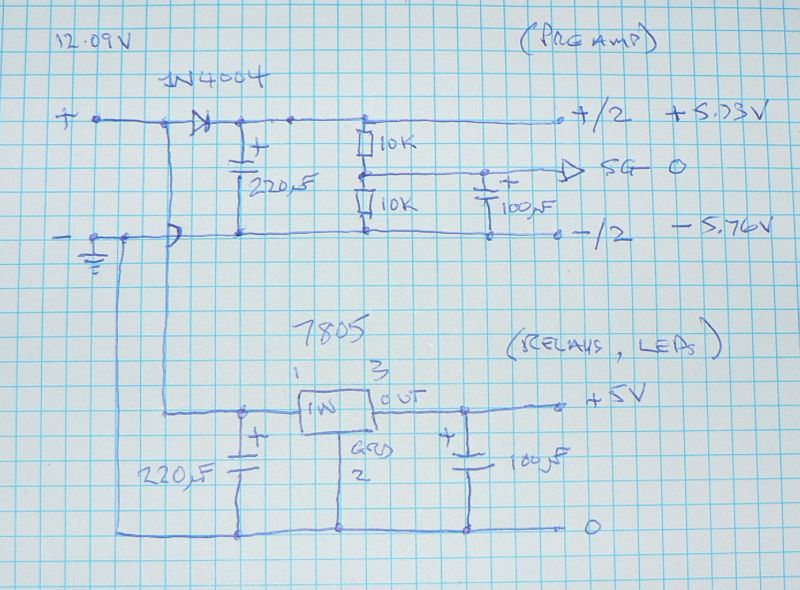 12.09V (PREAMP)
1N4004
+ +/2 +5.73V
+ 10K
220µF + SG 0
10K 100µF
- -/2 -5.76V
7805
(RELAYS, LEDS)
1 3
IN OUT +5V
+ GRD +
220µF 2 100µF
0